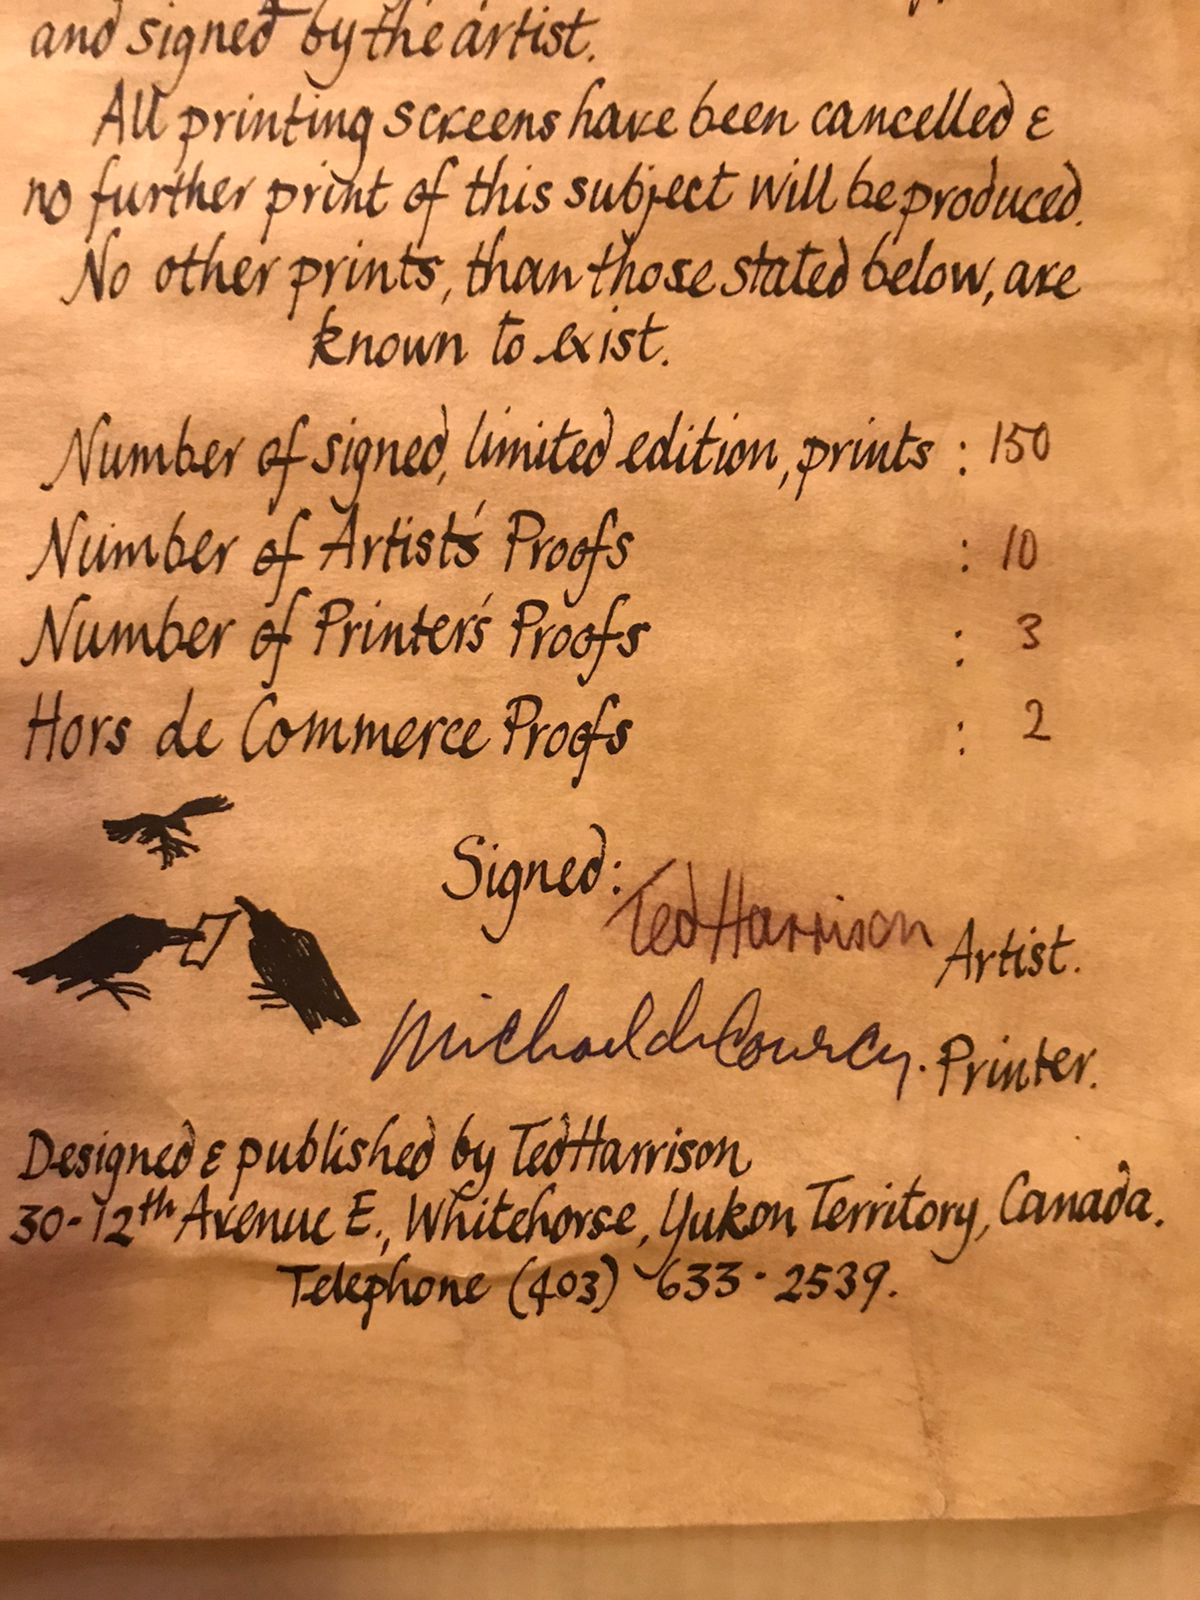 and signed by the artist.
All printing screens have been cancelled &
no further print of this subject will be produced.
No other prints, than those stated below, are
known to exist.
Number of signed, limited edition, prints : 150
Number of Artist's Proofs : 10
Number of Printer's Proofs : 3
Hors de Commerce Proofs : 2
Signed: Ted Harrison Artist.
Michael de Courcy. Printer.
Designed & published by Ted Harrison
30-12th Avenue E., Whitehorse, Yukon Territory, Canada.
Telephone (403) 633·2539.